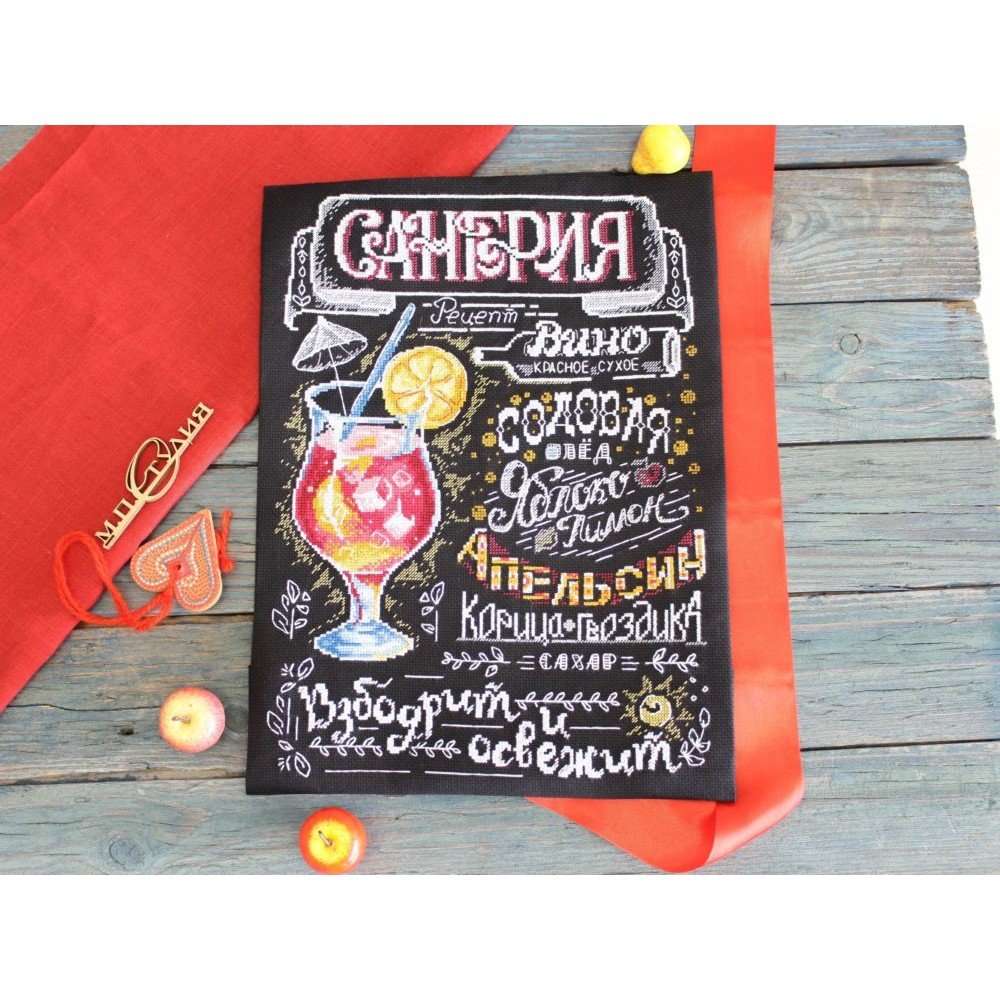 САНГРИЯ
Рецепт
Вино
КРАСНОЕ СУХОЕ
СОДОВАЯ
ЛЁД
Яблоко
Лимон
АПЕЛЬСИН
КОРИЦА + ГВОЗДИКА
САХАР
Взбодрит и
освежит
М.П. СТУДИЯ